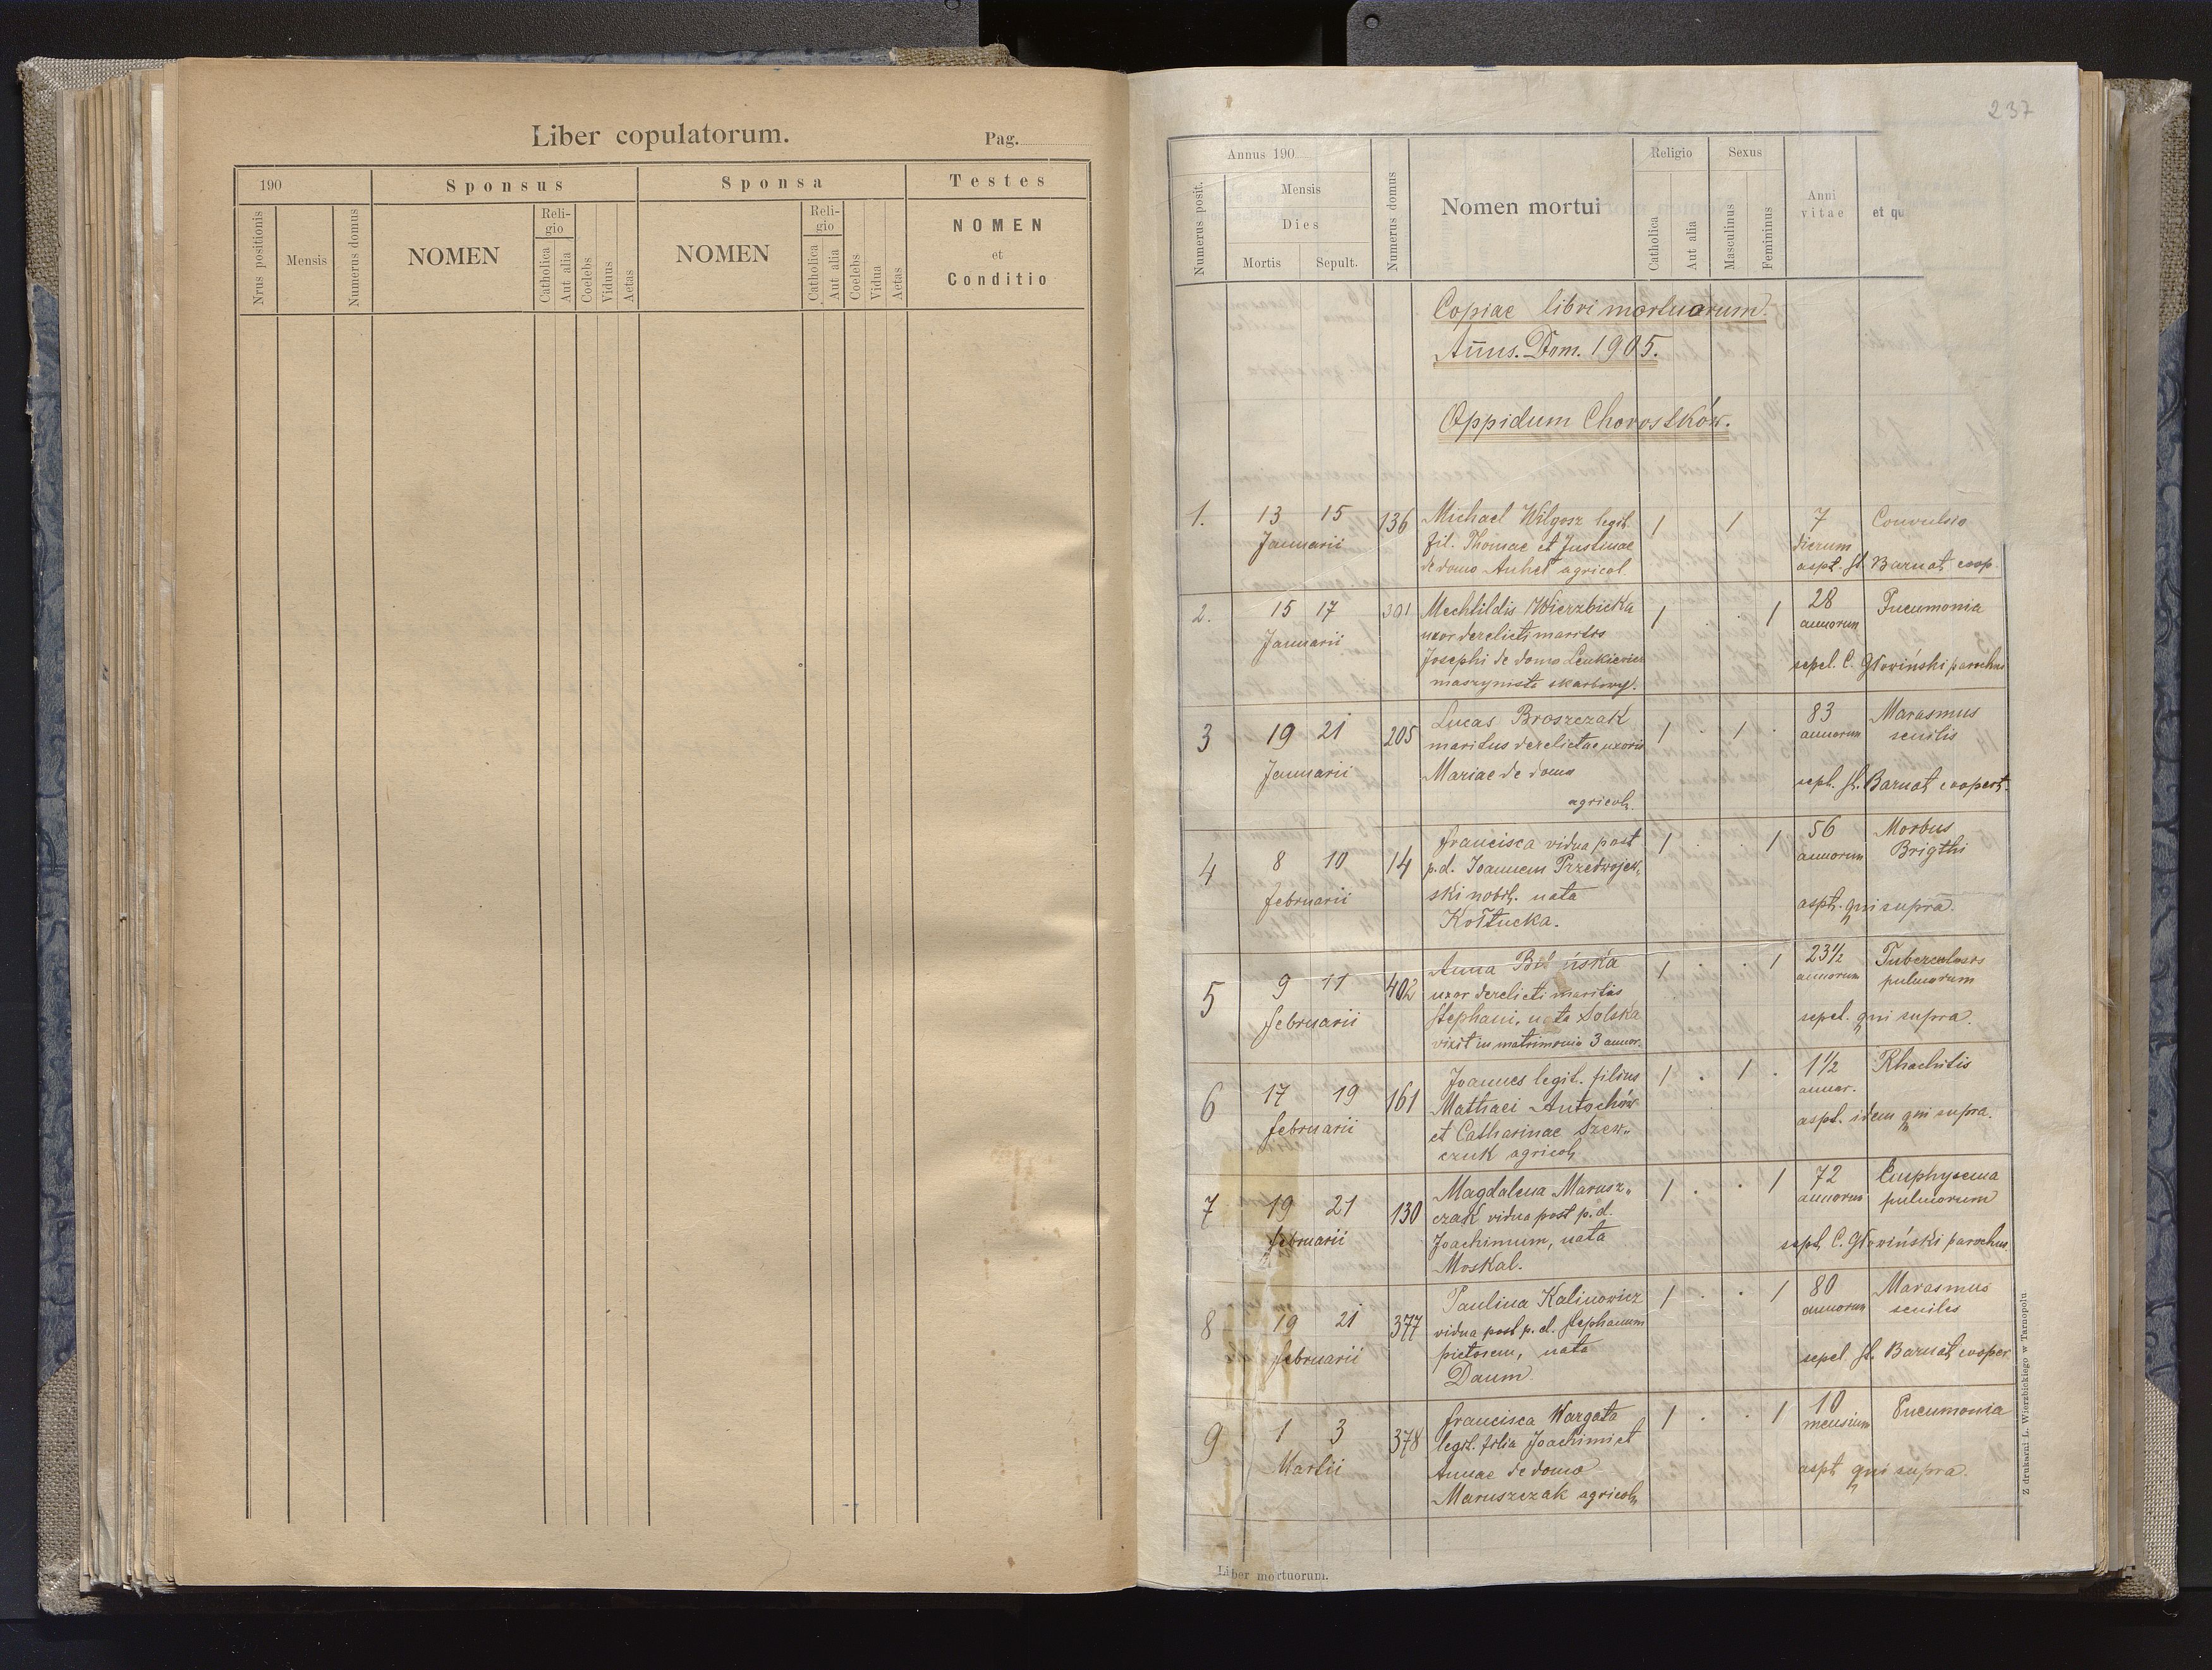 Liber copulatorum.
Pag.
190
Sponsus
Sponsa
Testes
Nrus positionis
Mensis
Numerus domus
NOMEN
Reli-
gio
Catholica
Aut alia
Coelebs
Viduus
Aetas
NOMEN
Reli-
gio
Catholica
Aut alia
Coelebs
Vidua
Aetas
NOMEN
et
Conditio
237
Annus 190
Numerus posit.
Mensis
Dies
Mortis
Sepult.
Numerus domus
Nomen mortui
Religio
Catholica
Aut alia
Sexus
Masculinus
Femininus
Anni
vitae
et qu
Copiae libri mortuorum.
Añus. Dom. 1905.
Oppidum Chorostków.
1. 13 15 136 Michael Wilgosz legit. 1 1 7 Convulsio
Januarii fil. Thomae et Justinae dierum
de domo Anhel agricol. aspt. St. Barnat coop.
2. 15 17 301 Mechtildis Wierzbicka 1 . . 1 28 Pneumonia
Januarii uxor derelicti maritis annorum
Josephi de domo Leukiewicz sepel. C. Głowiński parochus
maszynista skarbowy.
3 19 21 205 Lucas Broszczak 1 . 1 . 83 Marasmus
maritus derelictae uxoris annorum senilis
Januarii Mariae de domo sepl. St. Barnat coopert.
agricol.
4 8 10 14 Francisca vidua post 1 . . 1 56 Morbus
p.d. Joannem Przedwojew„ annorum Brigthi
februarii ski nobil. nata aspt. qui supra.
Kołtucka.
5 9 11 402 Anna 1 . . 1 23½ Tuberculosis
uxor derelicti maritis annorum pulmorum
februarii Stephani, nata Solska sepel. qui supra.
vixit in matrimonio 3 annor.
6 17 19 161 Joannes legit. filius 1 . 1 . 1½ Rhachitis
Mathaei Antochów annor.
februarii et Catharinae Szew„ aspt. idem qui supra.
czuk agricol.
7 19 21 130 Magdalena Marusz„ 1 . . 1 72 Emphysema
czak vidua post p.d. annorum pulmorum
februarii Joachimum, nata sepl. C. Głowiński parochus
Moskal.
8 19 21 377 Paulina Kalinowicz 1 . . 1 80 Marasmus
vidua post p.d. Stephanum annorum senilis
februarii pictorem, nata sepel. St. Barnat cooper.
Daum.
9 1 3 378 Francisca Wargata 1 . . 1 10 Pneumonia
legit. filia Joachimi et mensium
Martii Annae de domo aspt. qui supra.
Maruszczak agricol.
Liber mortuorum.
Z drukarni L. Wierzbickiego w Tarnopolu